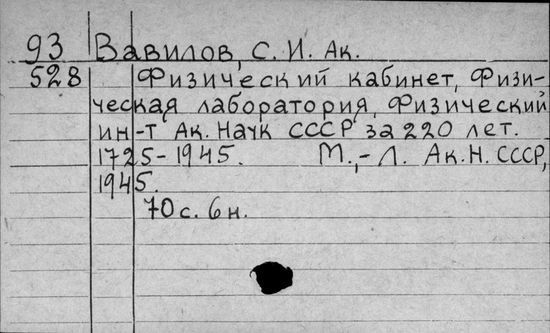 93 Вавилов, С. И. Ак.
528 Физический кабинет, Физи-
ческая лаборатория, Физический
ин-т Ак. Наук СССР за 220 лет.
1725-1945. М.,-Л. Ак. Н. СССР,
1945.
70 с. 6 н.